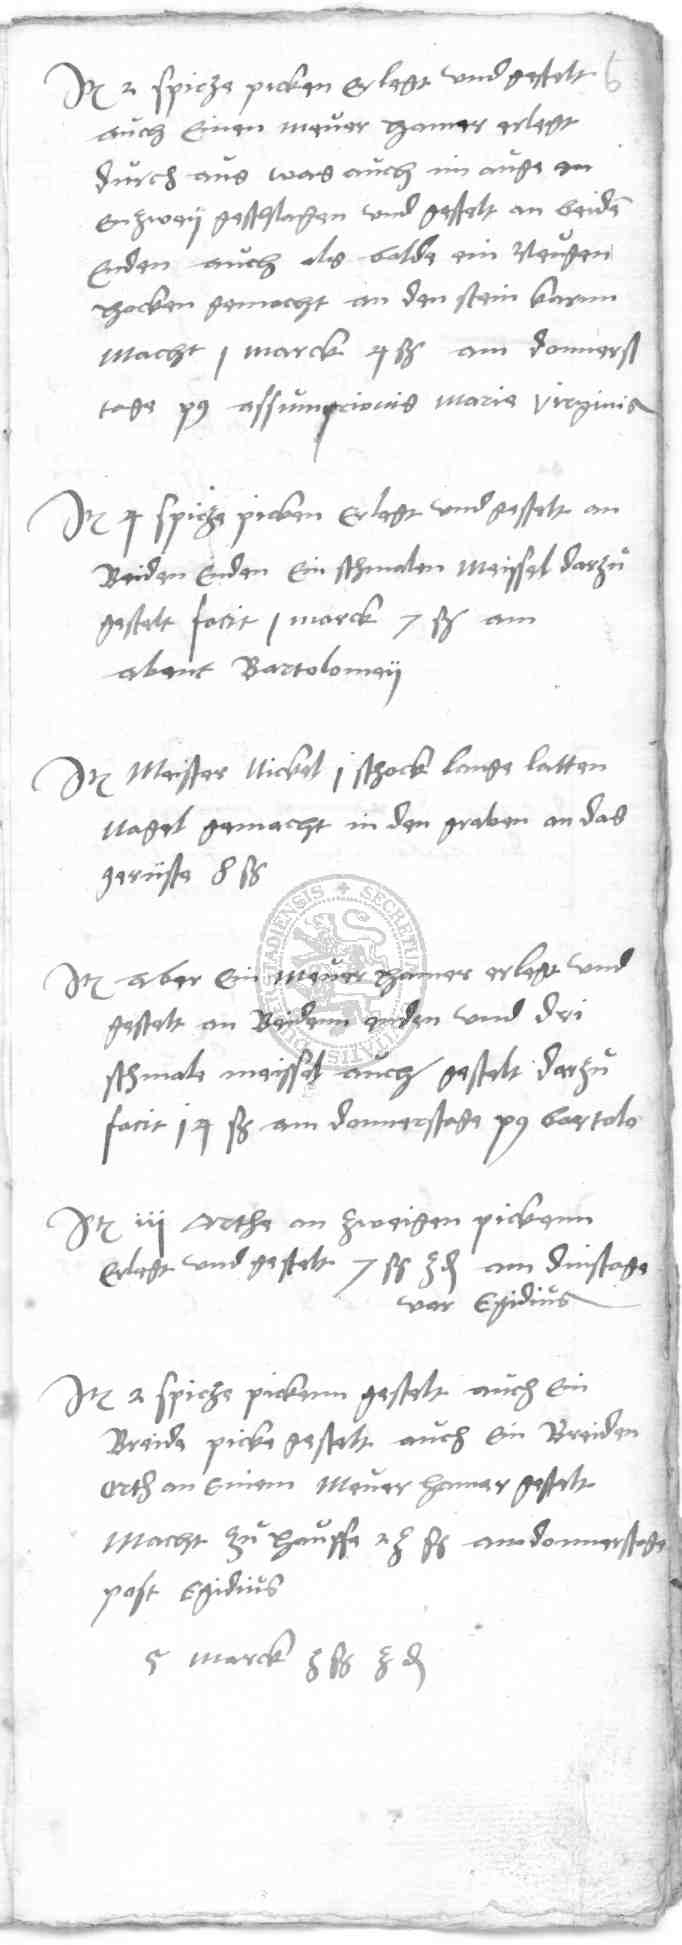 Itt 2 spicze picken erlegt und gestelt 6
auch Einen meuer hamer erlegt
durch aus was auch im auge en
enzweij geschlagen und gestelt an beide
Enden auch als balde ein Neugen
hocken gemacht an den stein karnn
Macht 1 marck 4 ß am donnerst
tage p9 assumpcionis marie virginis
Itt 4 spicze picken Erlegt und gestelt an
Beiden Enden Ein schmalen Meissel darzu
gestelt facit 1 marck 7 ß am
abent Bartolomeij
Itt Meister Nickel j schock lange latten
Nagel gemacht in den graben an das
geruste 8 ß
Itt aber Ein meuer hamer erlegt und
gestelt an Beidenn enden und drei
schmale meissel auch gestelt darzu
facit 14 ß am donnerstage p9 bartolo
Itt iij Orthe an zweigen pickenn
Erlegt und gestelt 7 ß 3 d am dinstage
vor Egidius
Itt 2 spicze pickenn gestelt auch Ein
Breide picke gestelt auch Ein Breiden
orth an Einem Meuer hamer gestelt
Macht zu hauffe 23 ß am donnerstage
post Egidius
5 marck 3 ß 3 d
SECRETUM DIENSIS